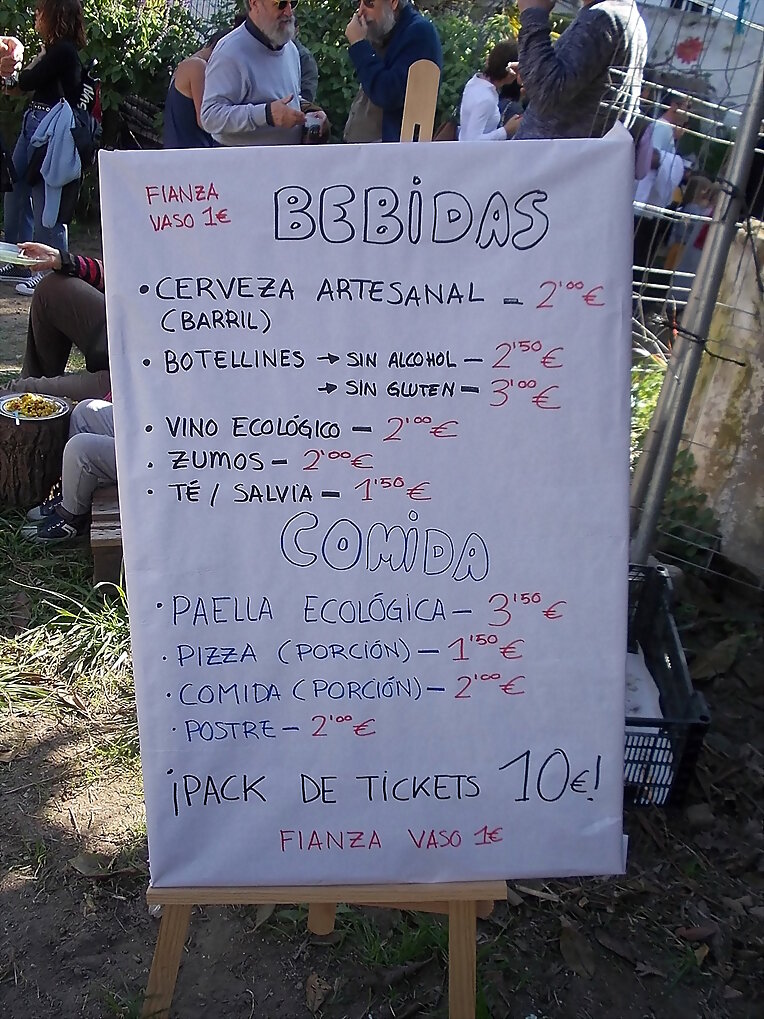 FIANZA
VASO 1€
BEBIDAS
• CERVEZA ARTESANAL - 2'00€
(BARRIL)
• BOTELLINES → SIN ALCOHOL - 2'50€
→ SIN GLUTEN - 3'00€
• VINO ECOLÓGICO - 2'00€
• ZUMOS - 2'00€
• TÉ / SALVIA - 1'50€
COMIDA
• PAELLA ECOLÓGICA - 3'50€
• PIZZA (PORCIÓN) - 1'50€
• COMIDA (PORCIÓN) - 2'00€
• POSTRE - 2'00€
¡PACK DE TICKETS 10€!
FIANZA VASO 1€